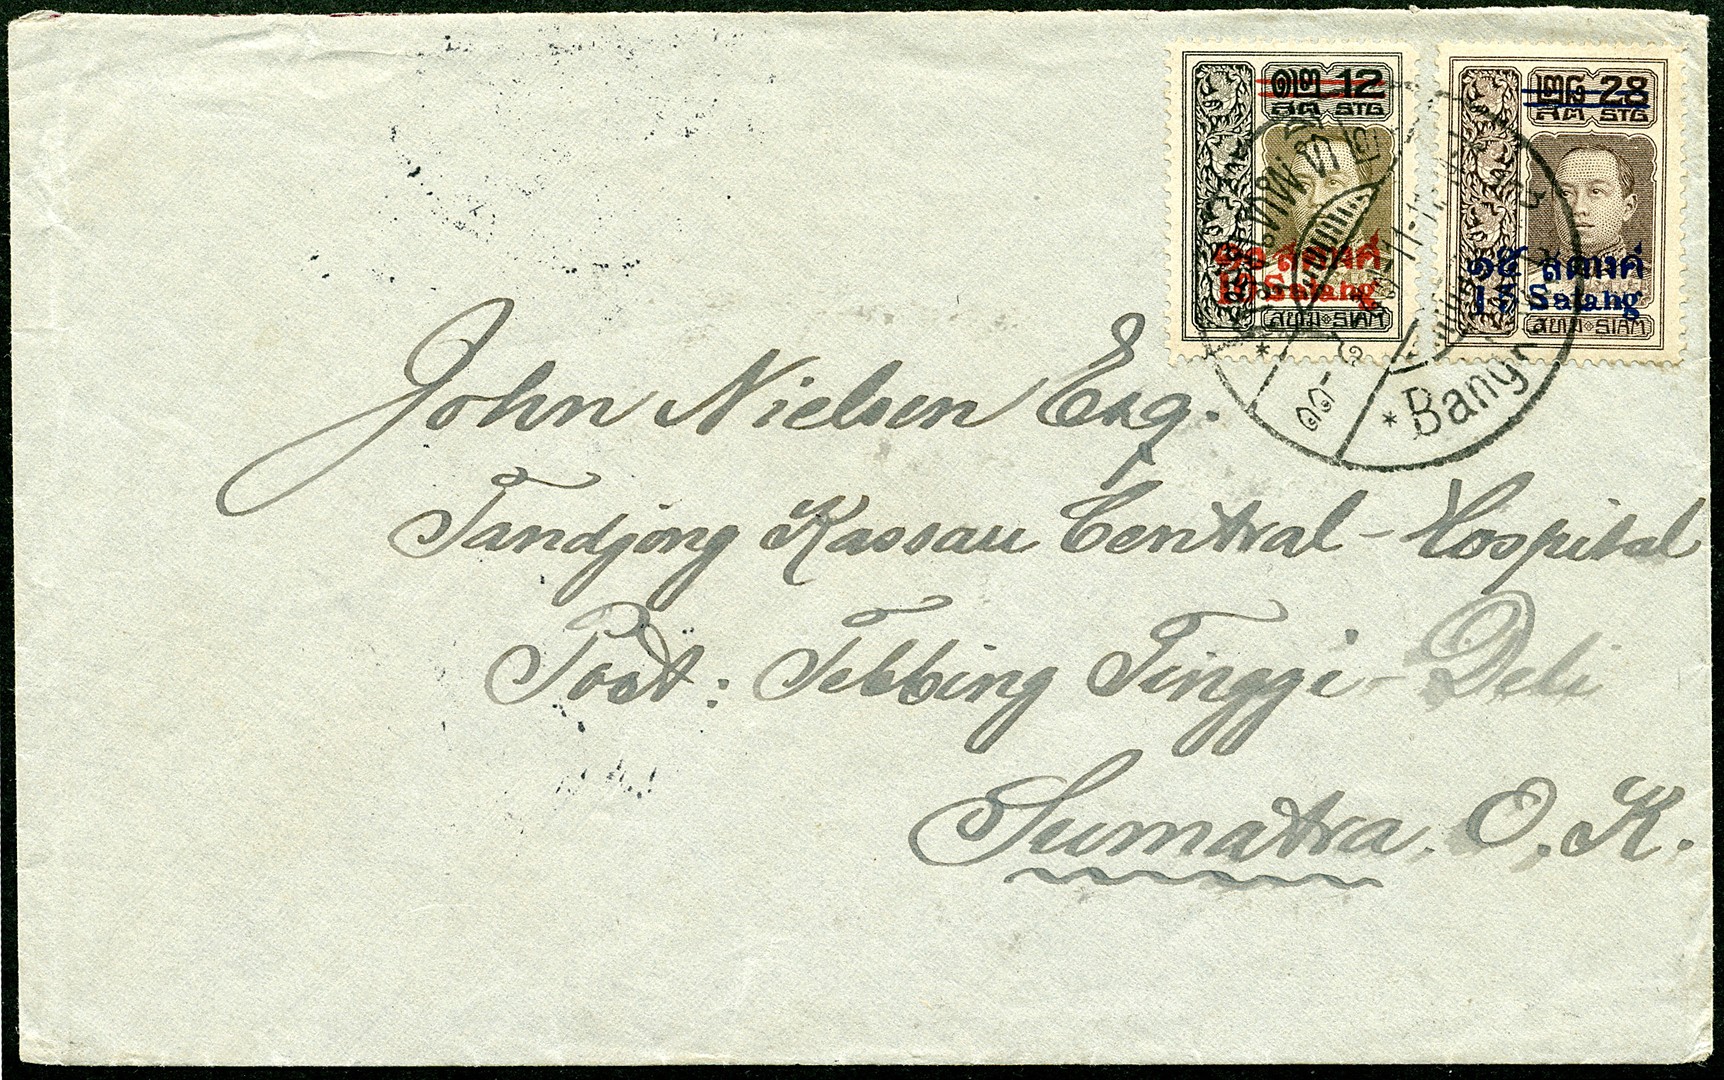 ๑๒ 12
สต STG
๑๐ สตางค์
10 Satang
สยาม SIAM
๒๘ 28
สต STG
๑๕ สตางค์
15 Satang
สยาม SIAM
Bang
John Nielsen Esq.
Tandjong Kassau Central-Hospital
Post: Tebbing Tinggi-Deli
Sumatra. O.K.